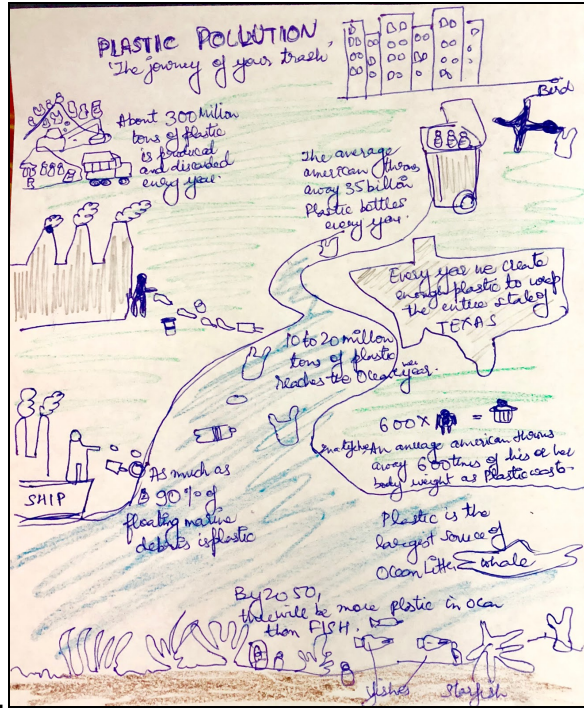 PLASTIC POLLUTION
'The journey of your trash'
Bird
About 300 Million
tons of plastic
is produced
and discaded
every year.
The average
american throws
away 35 billion
Plastic bottles
every year.
Every year we create
enough plastic to wrap
the entire state of
TEXAS
10 to 20 million
tons of plastic
reaches the Ocean
year.
600 X =
An average american throws
away 600 times of his or her
body weight as Plastic waste.
SHIP
As much as
90% of
floating marine
debris is plastic
Plastic is the
largest source of
Ocean Litter
Whale
By 2050,
there will be more plastic in ocean
than FISH.
fishes
starfish